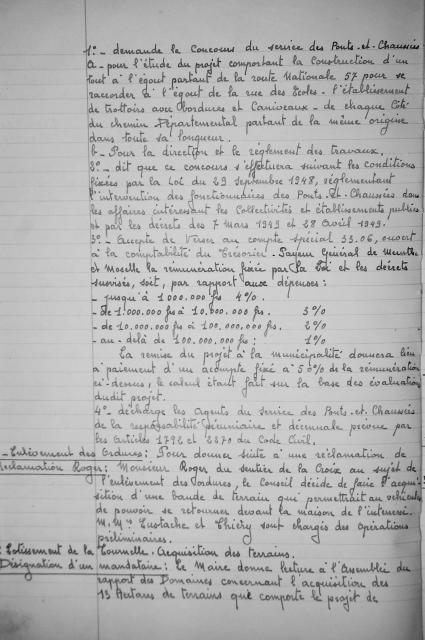 1°- demande le Concours du service des Ponts-et-Chaussées
a - pour l'étude du projet comportant la Construction d'un
tout à l'égout partant de la route Nationale 57 pour se
raccorder à l'égout de la rue des Ecoles - l'établissement
de trottoirs avec bordures et Caniveaux - de chaque Côté
du chemin Départemental partant de la même origine
dans toute sa longueur.
b - Pour la direction et le règlement des travaux.
2°- dit que ce concours s'effectuera suivant les conditions
fixées par la Loi du 29 Septembre 1948, réglementant
l'intervention des fonctionnaires des Ponts-et-Chaussées dans
les affaires intéressant les Collectivités et établissements publics
et par les décrets des 7 Mars 1949 et 28 Avril 1949.
3°- Accepte de Verser au compte spécial 33.06, ouvert
à la comptabilité du Trésorier-Payeur Général de Meurthe
et Moselle la rémunération fixée par la Loi et les décrets
susvisés, soit, par rapport aux dépenses :
- jusqu'à 1.000.000 frs 4%.
- de 1.000.000 frs à 10.000.000 frs. 3%
- de 10.000.000 frs à 100.000.000 frs. 2%
- au-delà de 100.000.000 frs : 1%
La remise du projet à la municipalité donnera lieu
à paiement d'un acompte fixé à 50% de la rémunération
ci-dessus, le calcul étant fait sur la base des évaluations
dudit projet.
4°- décharge les Agents du Service des Ponts-et-Chaussées
de la responsabilité pécuniaire et décennale prévue par
les Articles 1792 et 2270 du Code Civil.
- Enlèvement des Ordures : Pour donner suite à une réclamation de
Réclamation Roger : Monsieur Roger du sentier de la Croix au sujet de
l'enlèvement des ordures, le Conseil décide de faire l'acqui-
sition d'une bande de terrain qui permettrait au véhicule
de pouvoir se retourner devant la maison de l'intéressé.
M.Mrs Eustache et Thiéry sont chargés des opérations
préliminaires.
: Lotissement de la Tournelle. Acquisition des terrains.
Désignation d'un mandataire : le Maire donne lecture à l'Assemblée du
rapport des Domaines concernant l'acquisition des
13 Hectares de terrains que comporte le projet de